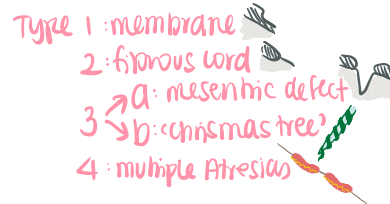 Type 1 : membrane
2 : fibrous cord
3
a : mesentric defect
b : "chrismas tree"
4 : multiple Atresias